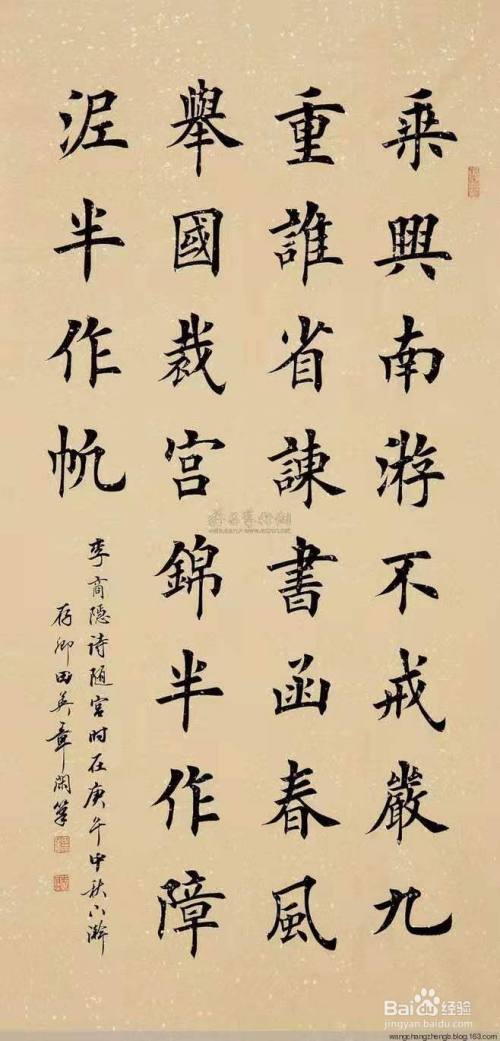 乘興南游不戒嚴九
重誰省諫書函春風
舉國裁宮錦半作障
泥半作帆
李商隐诗随宫时在庚午中秋下澣
存卿田英章閑筆
Bai du 经验
jingyan.baidu.com
wangchangzhengb.blog.163.com